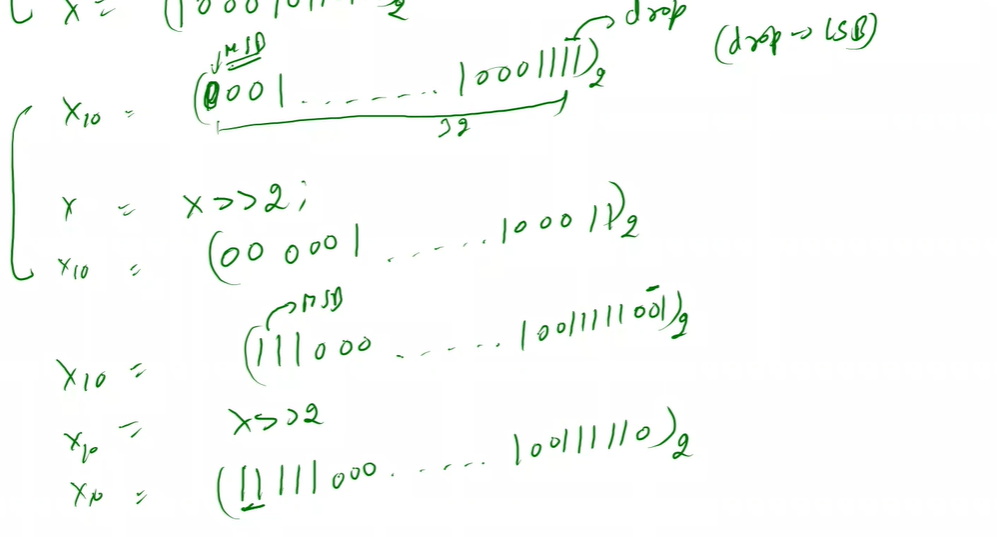 X = (1000101
drop
MSB
(drop → LSB)
X10 = (0001.......10001111)2
32
X = X>>2;
X10 = (000001......100011)2
MSB
X10 = (111000......10011111001)2
X10 = X>>2
X10 = (11111000......100111110)2